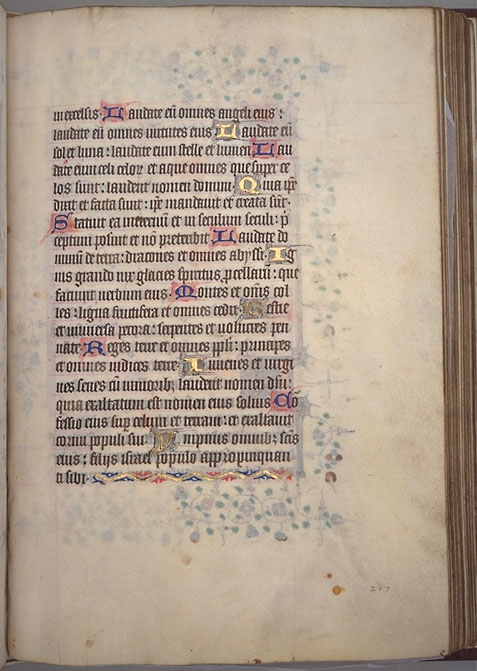 in excelsis. Laudate eū omnes angeli eius:
laudate eū omnes uirtutes eius Laudate eū
sol et luna: laudate eum stelle et lumen Lau
date eum celi celoꝝ et aque omnes que super ce
los sunt: laudent nomen domini Quia ip̄e
dixit et facta sunt: ip̄e mandauit et creata sūt.
Statuit ea in eternū et in seculum seculi: p̄
ceptum posuit et nō preteribit Laudate do
minū de terra: dracones et omnes abyssi. Ig
nis grando nix glacies spiritus ꝓcellarū: que
faciunt uerbum eius. Montes et om̄s col
les: ligna fructifera et omnes cedri Bestie
et uniuersa pecora: serpentes et uolucres pen
nate Reges terre et omnes ppl̄i: principes
et omnes iudices terre Iuuenes et uirgi
nes senes cū iuniorib; laudent nomen dn̄i:
quia exaltatum est nomen eius solius Cō
fessio eius sup̄ celum et terram: et exaltauit
cornu populi sui Ympnus omnib; sc̄is
eius: filijs israel populo appropinquan
ti sibi
217